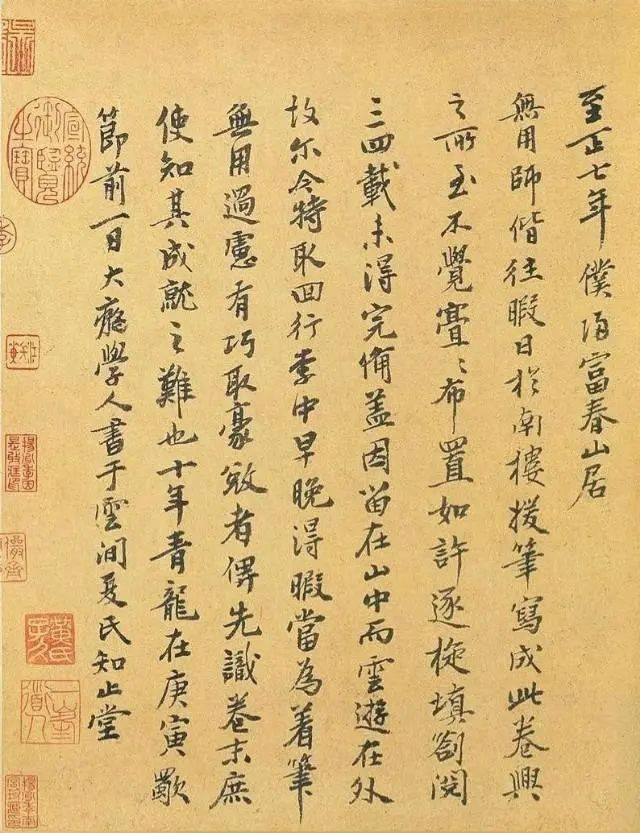 至正七年僕歸富春山居
無用師偕往暇日於南樓援筆寫成此卷興
之所至不覺亹〻布置如許逐旋填劄閱
三四載未得完備蓋因留在山中而雲遊在外
故爾今特取回行李中早晚得暇當為着筆
無用過慮有巧取豪敓者俾先識卷末庶
使知其成就之難也十年青龍在庚寅歜
節前一日大癡學人書于雲間夏氏知止堂
宣統御覽之寶
黃氏子久
一峯道人